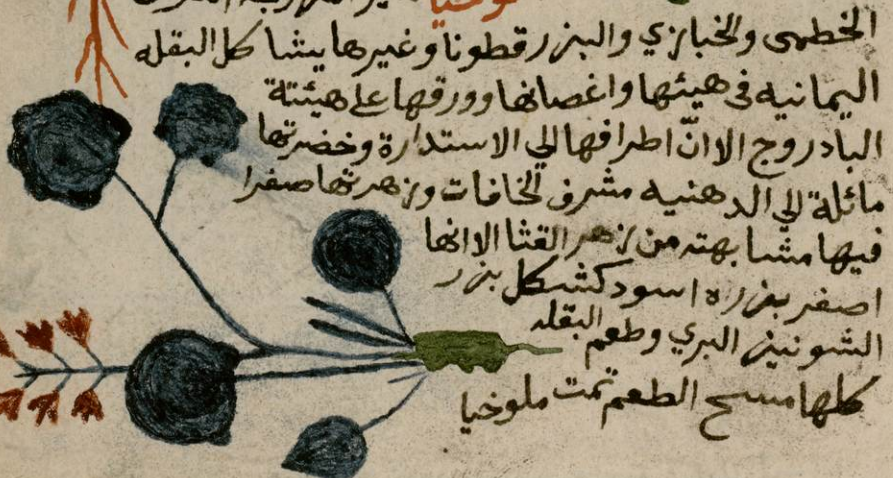 الخطمى والخبازي والبزر قطونا وغيرها يشا كل البقله
اليمانيه فى هيئها واغصانها وورقها على هيئة
البادروج الا انّ اطرافها الي الاستدارة وخضرتها
مائلة الي الدهنيه مشرف الحافات وزهرتها صفرا
فيها مشابهته من زهر القثا الا انها
اصغر بزره اسود كشكل بزر
الشونيز البري وطعم البقله
كلها مسح الطعم تمت ملوخيا